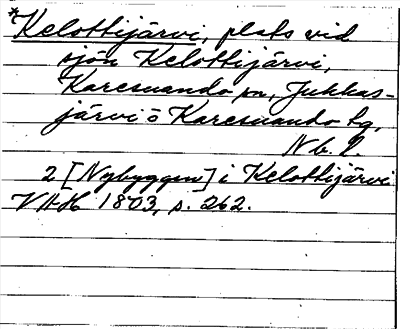 *Kelottijärvi, plats vid
sjön Kelottijärvi,
Karesuando sn, Jukkas-
järvi o Karesuando tg,
Nb. l.
2 [Nybyggen] i Kelottijärvi
VHH 1803, s. 262.